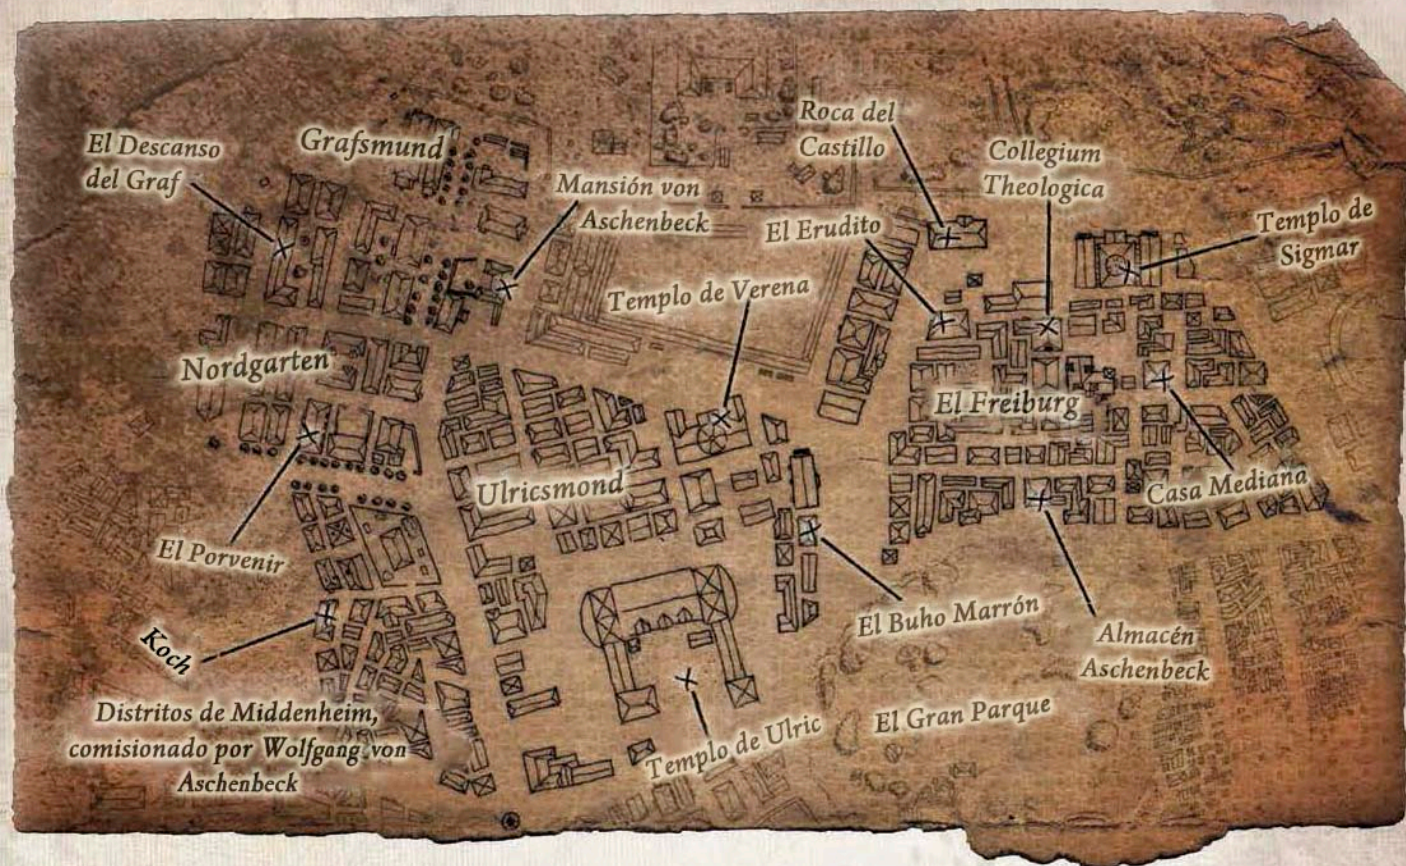 El Descanso
del Graf
Grafsmund
Mansión von
Aschenbeck
Roca del
Castillo
Collegium
Theologica
El Erudito
Templo de
Sigmar
Templo de Verena
Nordgarten
El Freiburg
Ulricsmond
Casa Mediana
El Porvenir
El Buho Marrón
Koch
Almacén
Aschenbeck
Distritos de Middenheim,
comisionado por Wolfgang von
Aschenbeck
Templo de Ulric
El Gran Parque